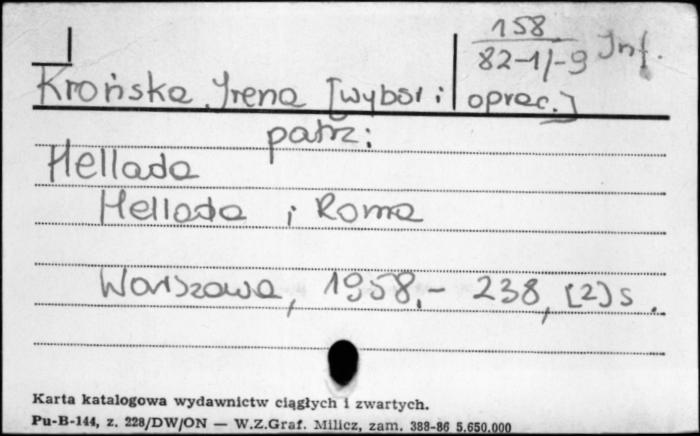 158
82-1/-9 Inf.
Krońska Irena [wybór i oprac.]
patrz:
Hellada
Hellada i Roma
Warszawa, 1958.- 238, [2] s.
Karta katalogowa wydawnictw ciągłych i zwartych.
Pu-B-144, z. 228/DW/ON — W.Z.Graf. Milicz, zam. 388-86 5.650.000